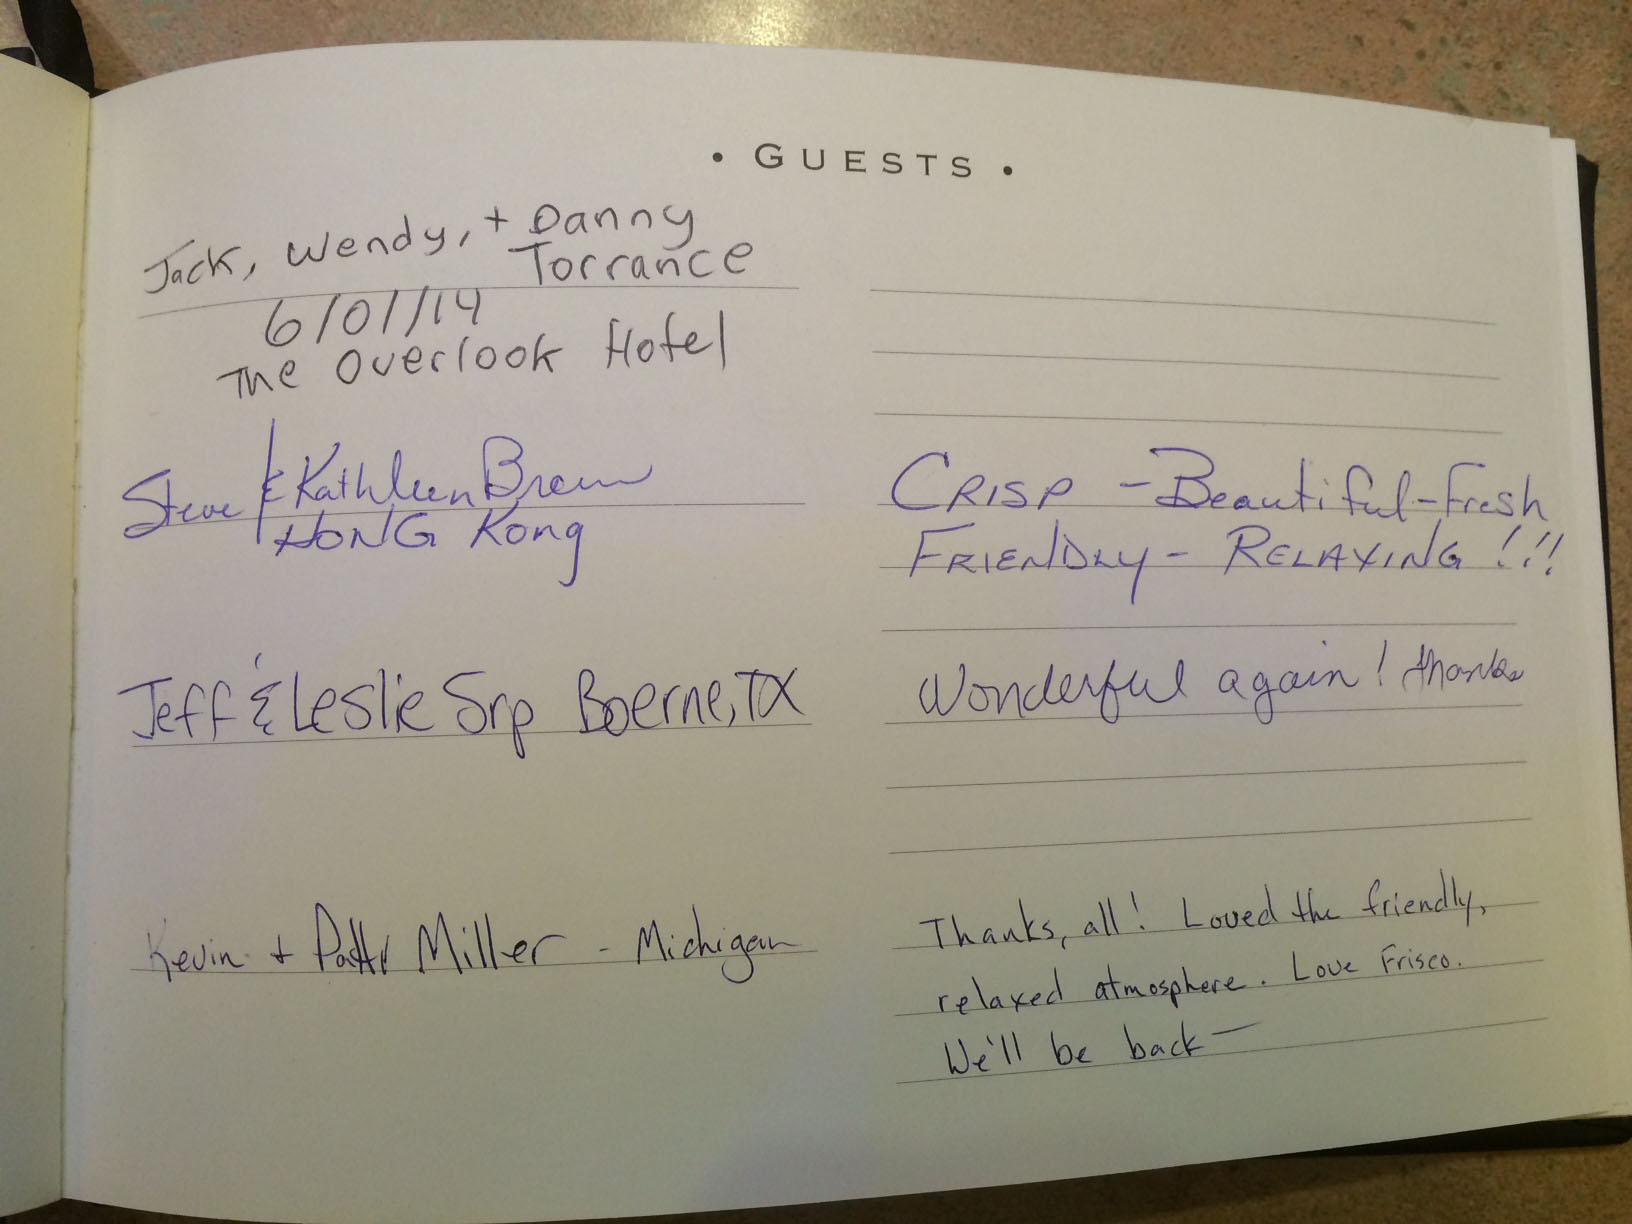 • GUESTS •
Jack, Wendy, + Danny
Torrance
6/01/14
The Overlook Hotel
Steve & Kathleen Brown
HONG Kong
CRISP - Beautiful - Fresh
FRIENDLY - RELAXING !!!
Jeff & Leslie Srp Boerne, TX
Wonderful again! thanks
Kevin + Patti Miller - Michigan
Thanks, all! Loved the friendly,
relaxed atmosphere. Love Frisco.
We'll be back —